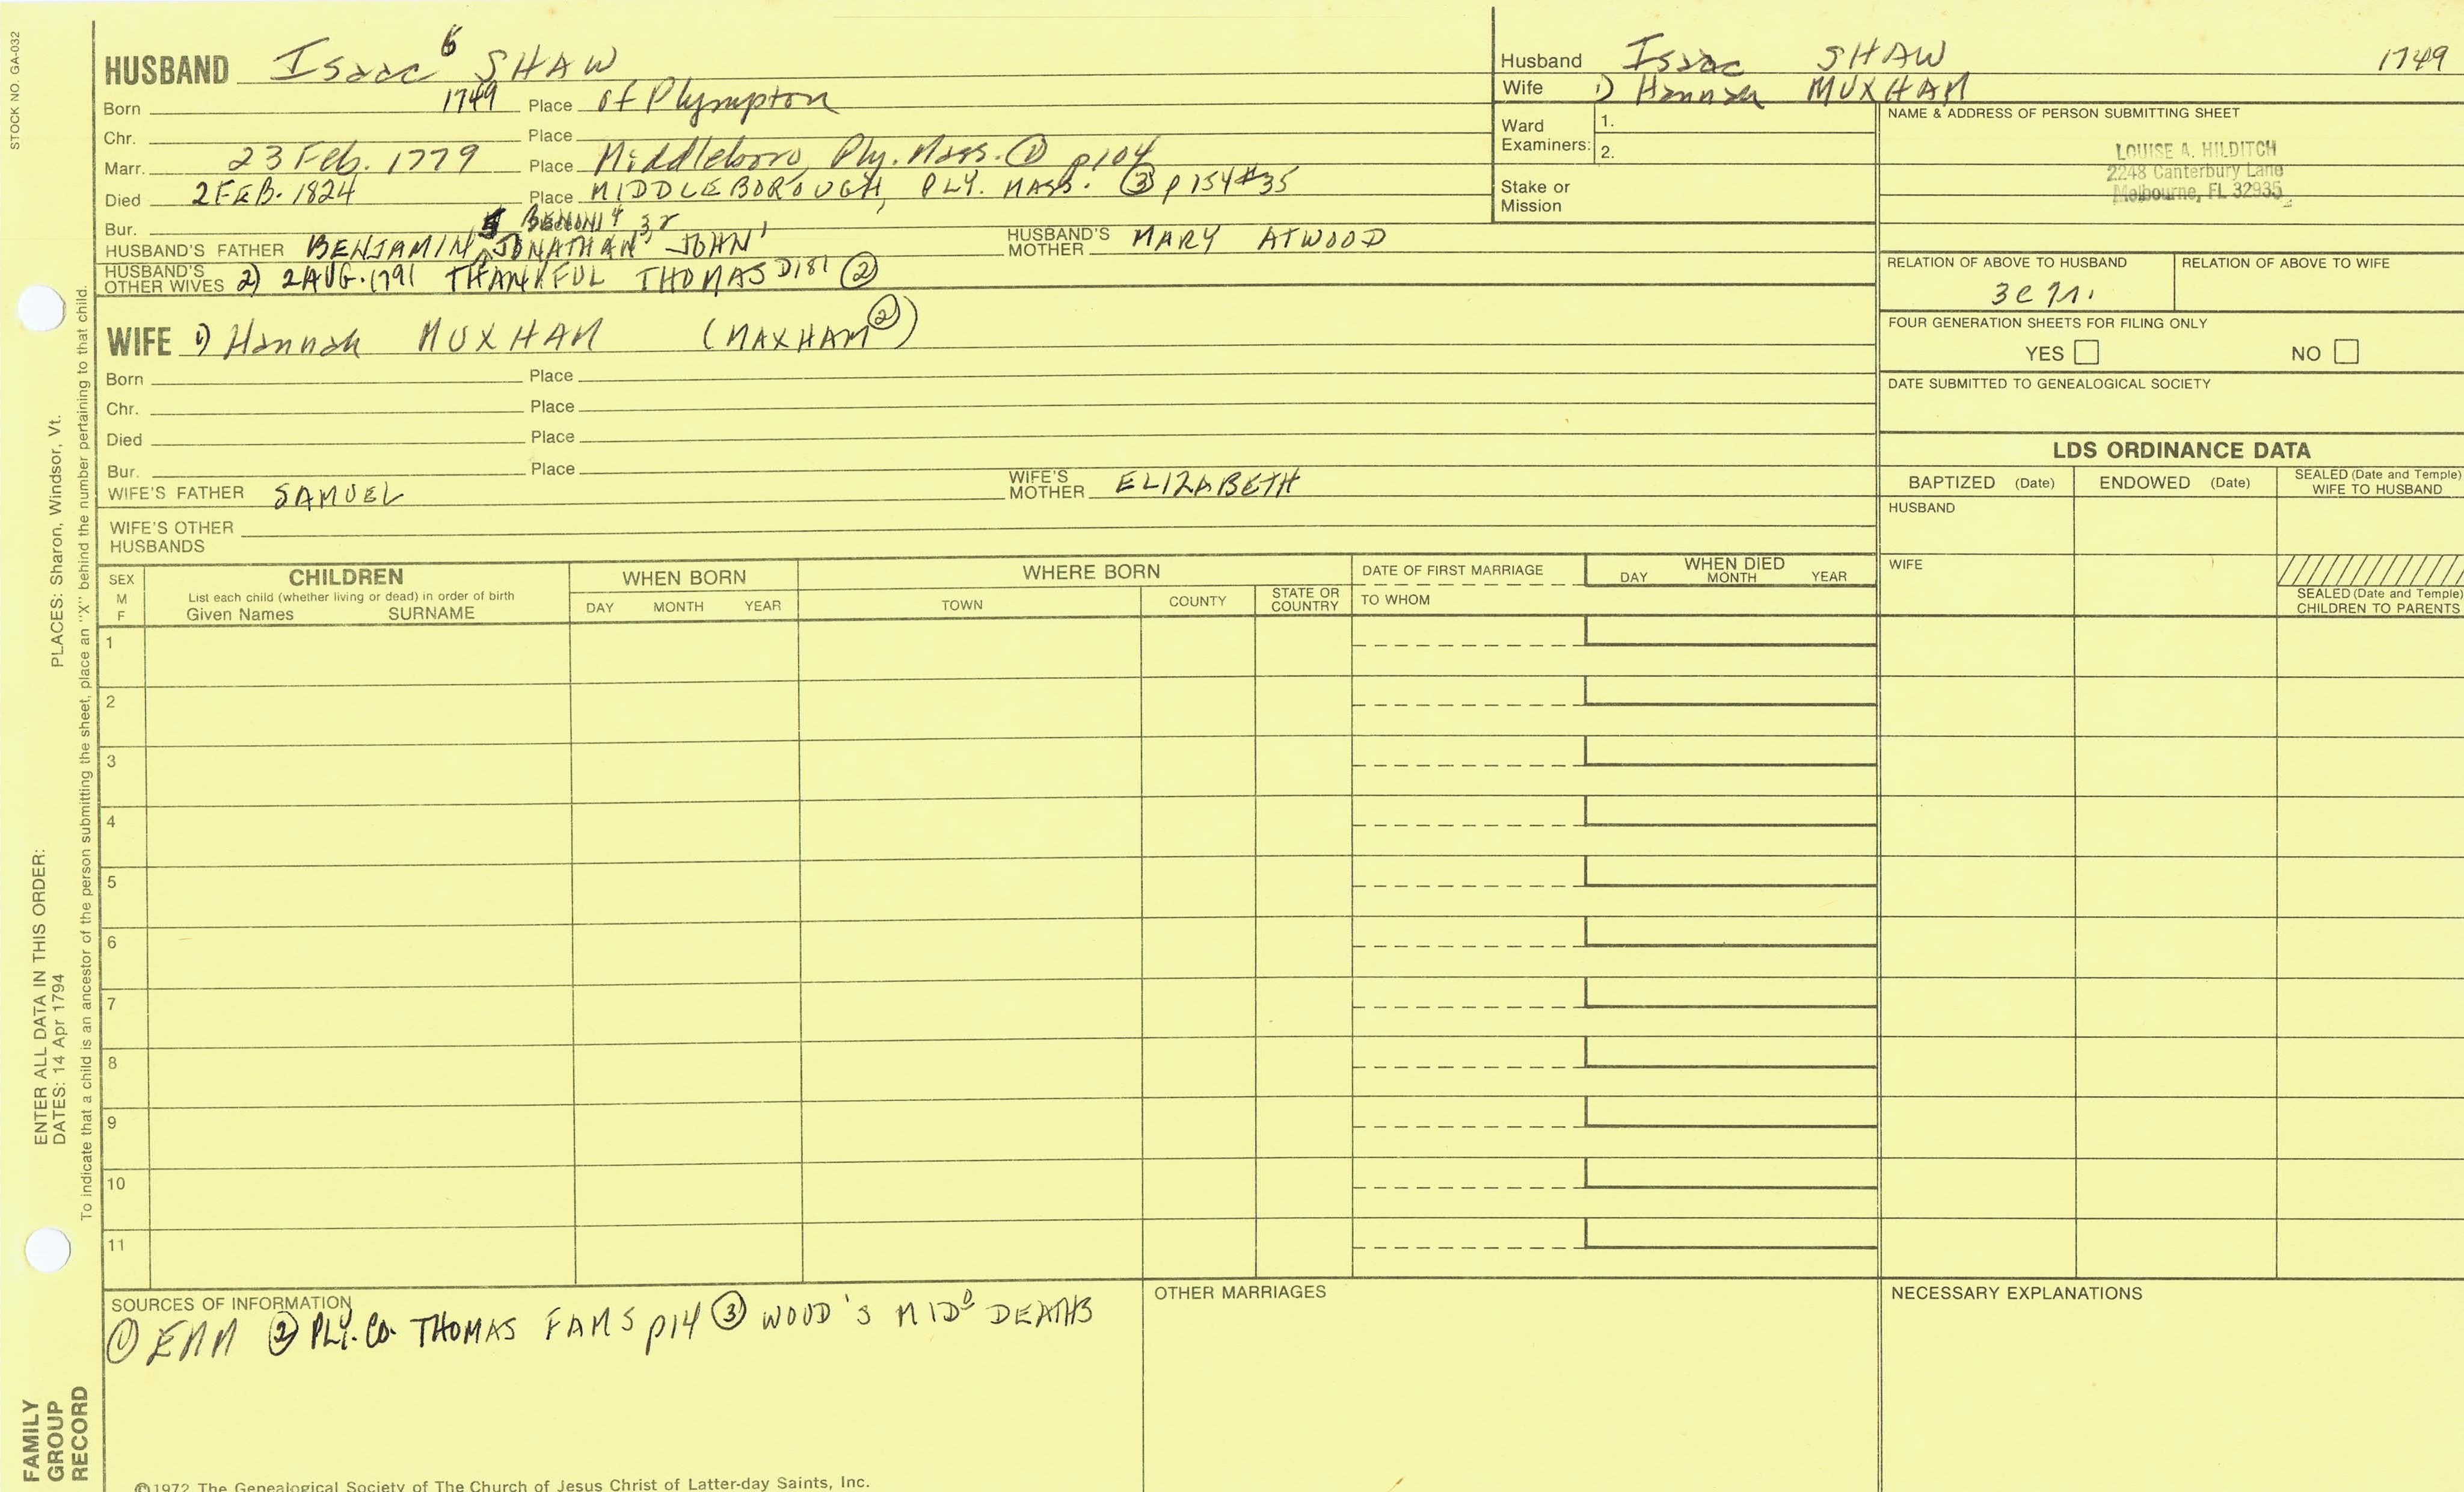 STOCK NO. GA-032
HUSBAND Isaac 6 SHAW
Born 1749 Place of Plympton
Chr. Place
Marr. 23 Feb. 1779 Place Middleboro, Ply. Mass. ① p104
Died 2 FEB. 1824 Place MIDDLEBOROUGH, PLY. MASS. ③ p 154 #35
Bur.
5 BENONI 4 3 2
HUSBAND'S FATHER BENJAMIN JONATHAN JOHN 1 HUSBAND'S MOTHER MARY ATWOOD
HUSBAND'S OTHER WIVES 2) 2 AUG. 1791 THANKFUL THOMAS D181 ②
WIFE 1) Hannah MUXHAM (MAXHAM ②)
Born Place
Chr. Place
Died Place
Bur. Place
WIFE'S FATHER SAMUEL WIFE'S MOTHER ELIZABETH
WIFE'S OTHER HUSBANDS
Husband Isaac SHAW 1749
Wife 1) Hannah MUXHAM
Ward Examiners: 1. 2.
Stake or Mission
NAME & ADDRESS OF PERSON SUBMITTING SHEET
LOUISE A. HILDITCH
2248 Canterbury Lane
Melbourne, FL 32935
RELATION OF ABOVE TO HUSBAND RELATION OF ABOVE TO WIFE
FOUR GENERATION SHEETS FOR FILING ONLY
YES NO
DATE SUBMITTED TO GENEALOGICAL SOCIETY
LDS ORDINANCE DATA
BAPTIZED (Date) ENDOWED (Date) SEALED (Date and Temple) WIFE TO HUSBAND
HUSBAND
WIFE
SEALED (Date and Temple) CHILDREN TO PARENTS
SEX M F
CHILDREN
List each child (whether living or dead) in order of birth
Given Names SURNAME
WHEN BORN
DAY MONTH YEAR
WHERE BORN
TOWN COUNTY STATE OR COUNTRY
DATE OF FIRST MARRIAGE
TO WHOM
WHEN DIED
DAY MONTH YEAR
1
2
3
4
5
6
7
8
9
10
11
SOURCES OF INFORMATION
① EMM ② PLY. CO. THOMAS FAMS p14 ③ WOOD'S MIDD DEATHS
OTHER MARRIAGES
NECESSARY EXPLANATIONS
©1972 The Genealogical Society of The Church of Jesus Christ of Latter-day Saints, Inc.
FAMILY GROUP RECORD
ENTER ALL DATA IN THIS ORDER:
DATES: 14 Apr 1794 PLACES: Sharon, Windsor, Vt.
To indicate that a child is an ancestor of the person submitting the sheet, place an "X" behind the number pertaining to that child.